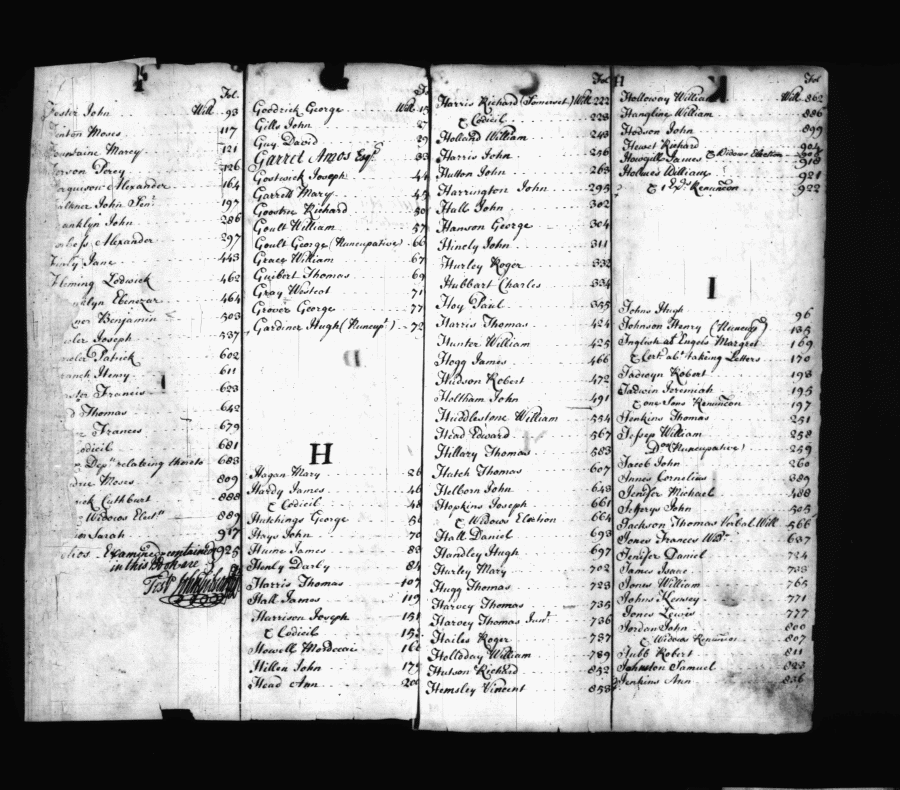 F
Fol.
John Will 93
Moses 117
Marcy 121
126
Alexander 164
John Senr. 197
John 286
Alexander 297
Jane 443
Fleming Lodwick 462
Ebenezar 464
Benjamin 503
Joseph 537
Patrick 602
Henry 611
Francis 623
Thomas 642
Frances 679
681
relateing thereto 683
Moses 809
Cuthburt 888
Widows Elect.n 889
Sarah 917
Examined contained 925
in this Book are
Test
Goodrick George Will
Gills John
Guy David
Garret Amos Esqr.
Gostwick Joseph 44
Garrett Mary
Richard
Goult William 57
Goult George (Nuncupative) 66
Grace William 67
Guibert Thomas 69
Gray Westcot 71
Grover George 77
Gardiner Hugh (Nuncupt.) 72
H
Hagan Mary 26
Hardy James
& Codicil 48
Hutchings George
Hays John
James
Henly Darby
Harris Thomas 107
Hall James 119
Harrison Joseph 151
& Codicil
Howell Mordecai
Hillen John
Head Ann
Fol
Harris Richard (Somerset) Will 222
& Codicil 223
Holland William 243
Harris John 256
Hutton John 263
Harrington John 295
Hall John 302
Hanson George 304
Hinely John 311
Hurley Roger 332
Hubbart Charles 334
Hoy Paul 355
Harris Thomas 424
Hunter William 425
Hogg James 466
Hudson Robert 472
Holtham John 491
Huddlestone William 554
Head Edward 567
Hillary Thomas 583
Hatch Thomas 607
Helborn John 643
Hopkins Joseph 661
& Widows Election 664
Hall Daniel 693
Handley Hugh 697
Hurley Mary 702
Hugg Thomas 723
Harvey Thomas 735
Harvey Thomas Junr. 736
Hailes Roger 737
Holliday William 789
Hutson Richard 852
Hemsley Vincent 858
H
Fol
Holloway William Will 862
Hangline William 886
Hodson John 899
Hewet Richard 904
Howgill James & Widows Election
Holmes William 921
& 1 Exrs. Renuncon 922
I
Johns Hugh 96
Johnson Henry (Nuncup) 135
Inglish at Engels Margret 169
& Cert. abt. taking Letters 170
Jadwyn Robert 193
Jadwin Jeremiah 195
& one Sons Renuncon 197
Jenkins Thomas 251
Jessep William 258
Do. (Nuncupative) 259
Jacob John 260
Innes Cornelius 389
Jenifer Michael 488
Jefferys John 505
Jackson Thomas Verbal Will 566
Jones Frances Widr. 637
Jenifer Daniel 724
James Isaac 733
Jones William 765
Johns Kensey 771
Jones Lewis 777
Jordan John 800
& Widows Renuncion 807
Jubb Robert 811
Johnston Samuel 823
Jenkins Ann 836